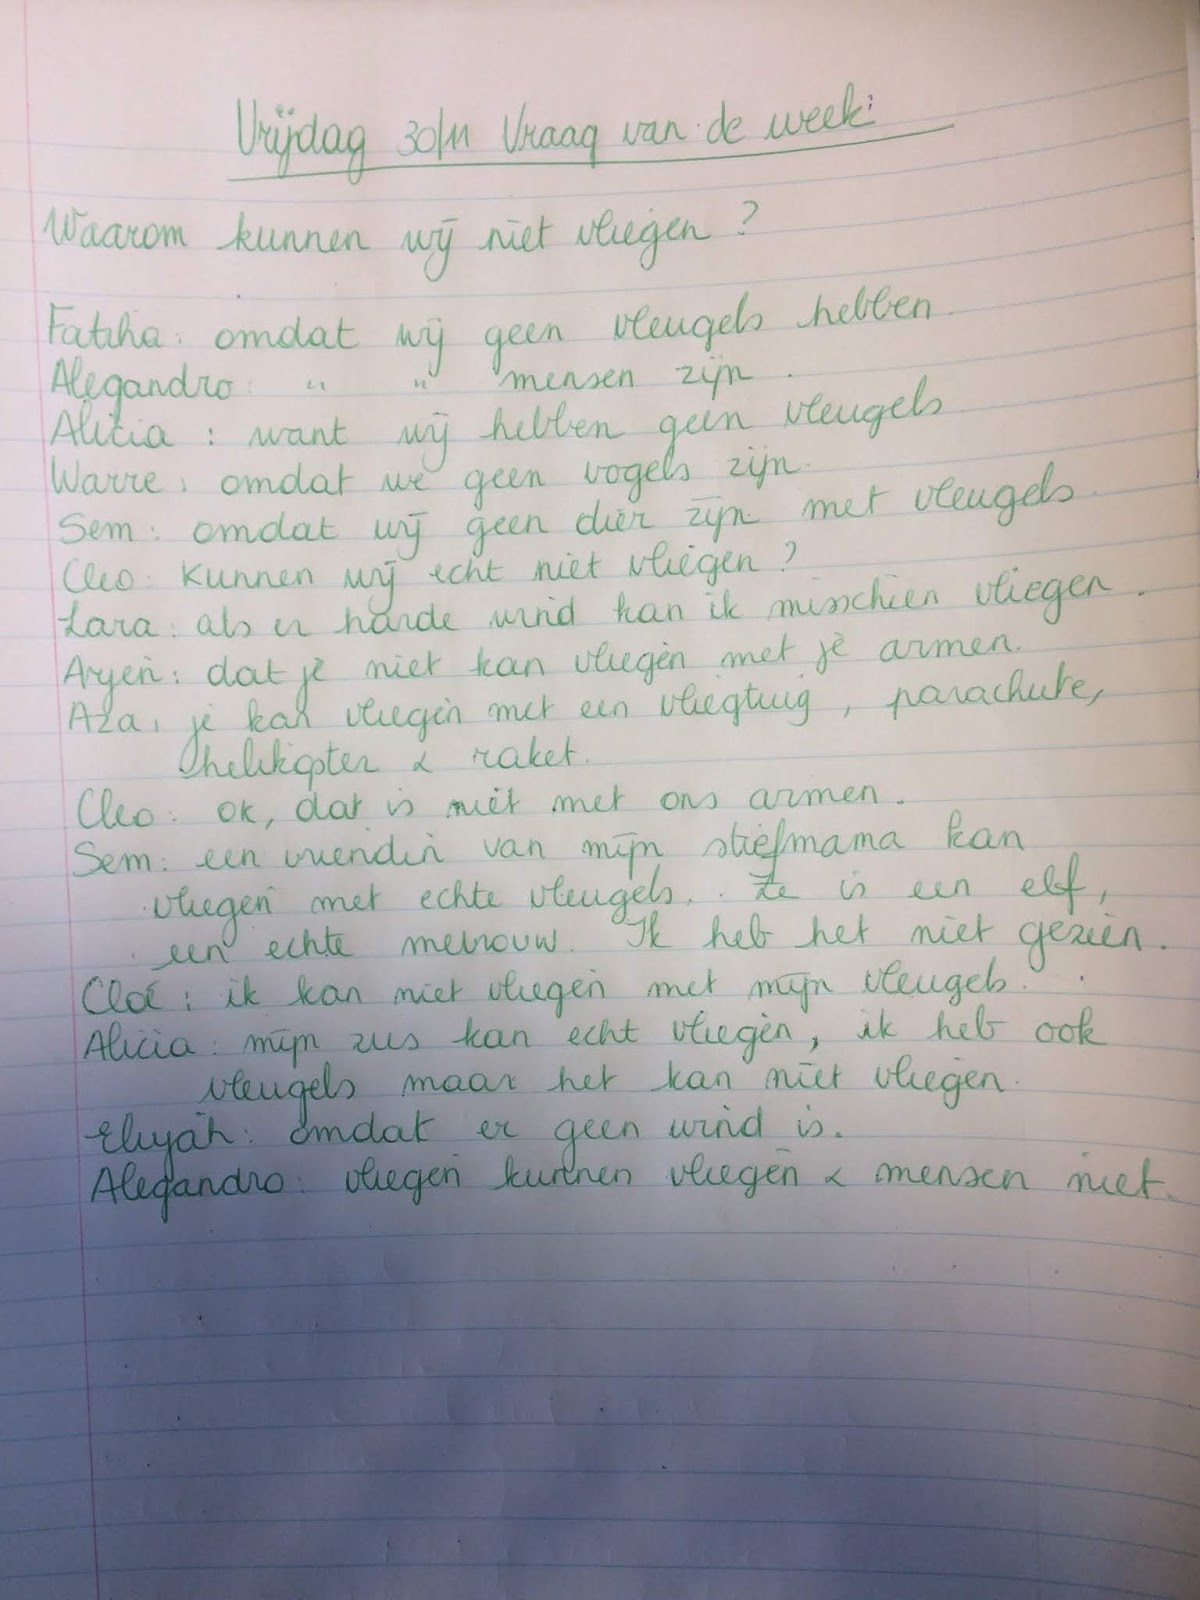 Vrijdag 30/11 Vraag van de week:
Waarom kunnen wij niet vliegen?
Fatiha: omdat wij geen vleugels hebben.
Alegandro: " " mensen zijn.
Alicia: want wij hebben geen vleugels
Warre: omdat we geen vogels zijn.
Sem: omdat wij geen dier zijn met vleugels.
Cleo: Kunnen wij echt niet vliegen?
Lara: als er harde wind kan ik misschien vliegen.
Aryen: dat je niet kan vliegen met je armen.
Aza: je kan vliegen met een vliegtuig, parachute,
helikopter & raket.
Cleo: ok, dat is niet met ons armen.
Sem: een vriendin van mijn stiefmama kan
vliegen met echte vleugels. Ze is een elf,
een echte mevrouw. Ik heb het niet gezien.
Cloé: ik kan niet vliegen met mijn vleugels.
Alicia: mijn zus kan echt vliegen, ik heb ook
vleugels maar het kan niet vliegen.
Elyjah: omdat er geen wind is.
Alegandro: vliegen kunnen vliegen & mensen niet.